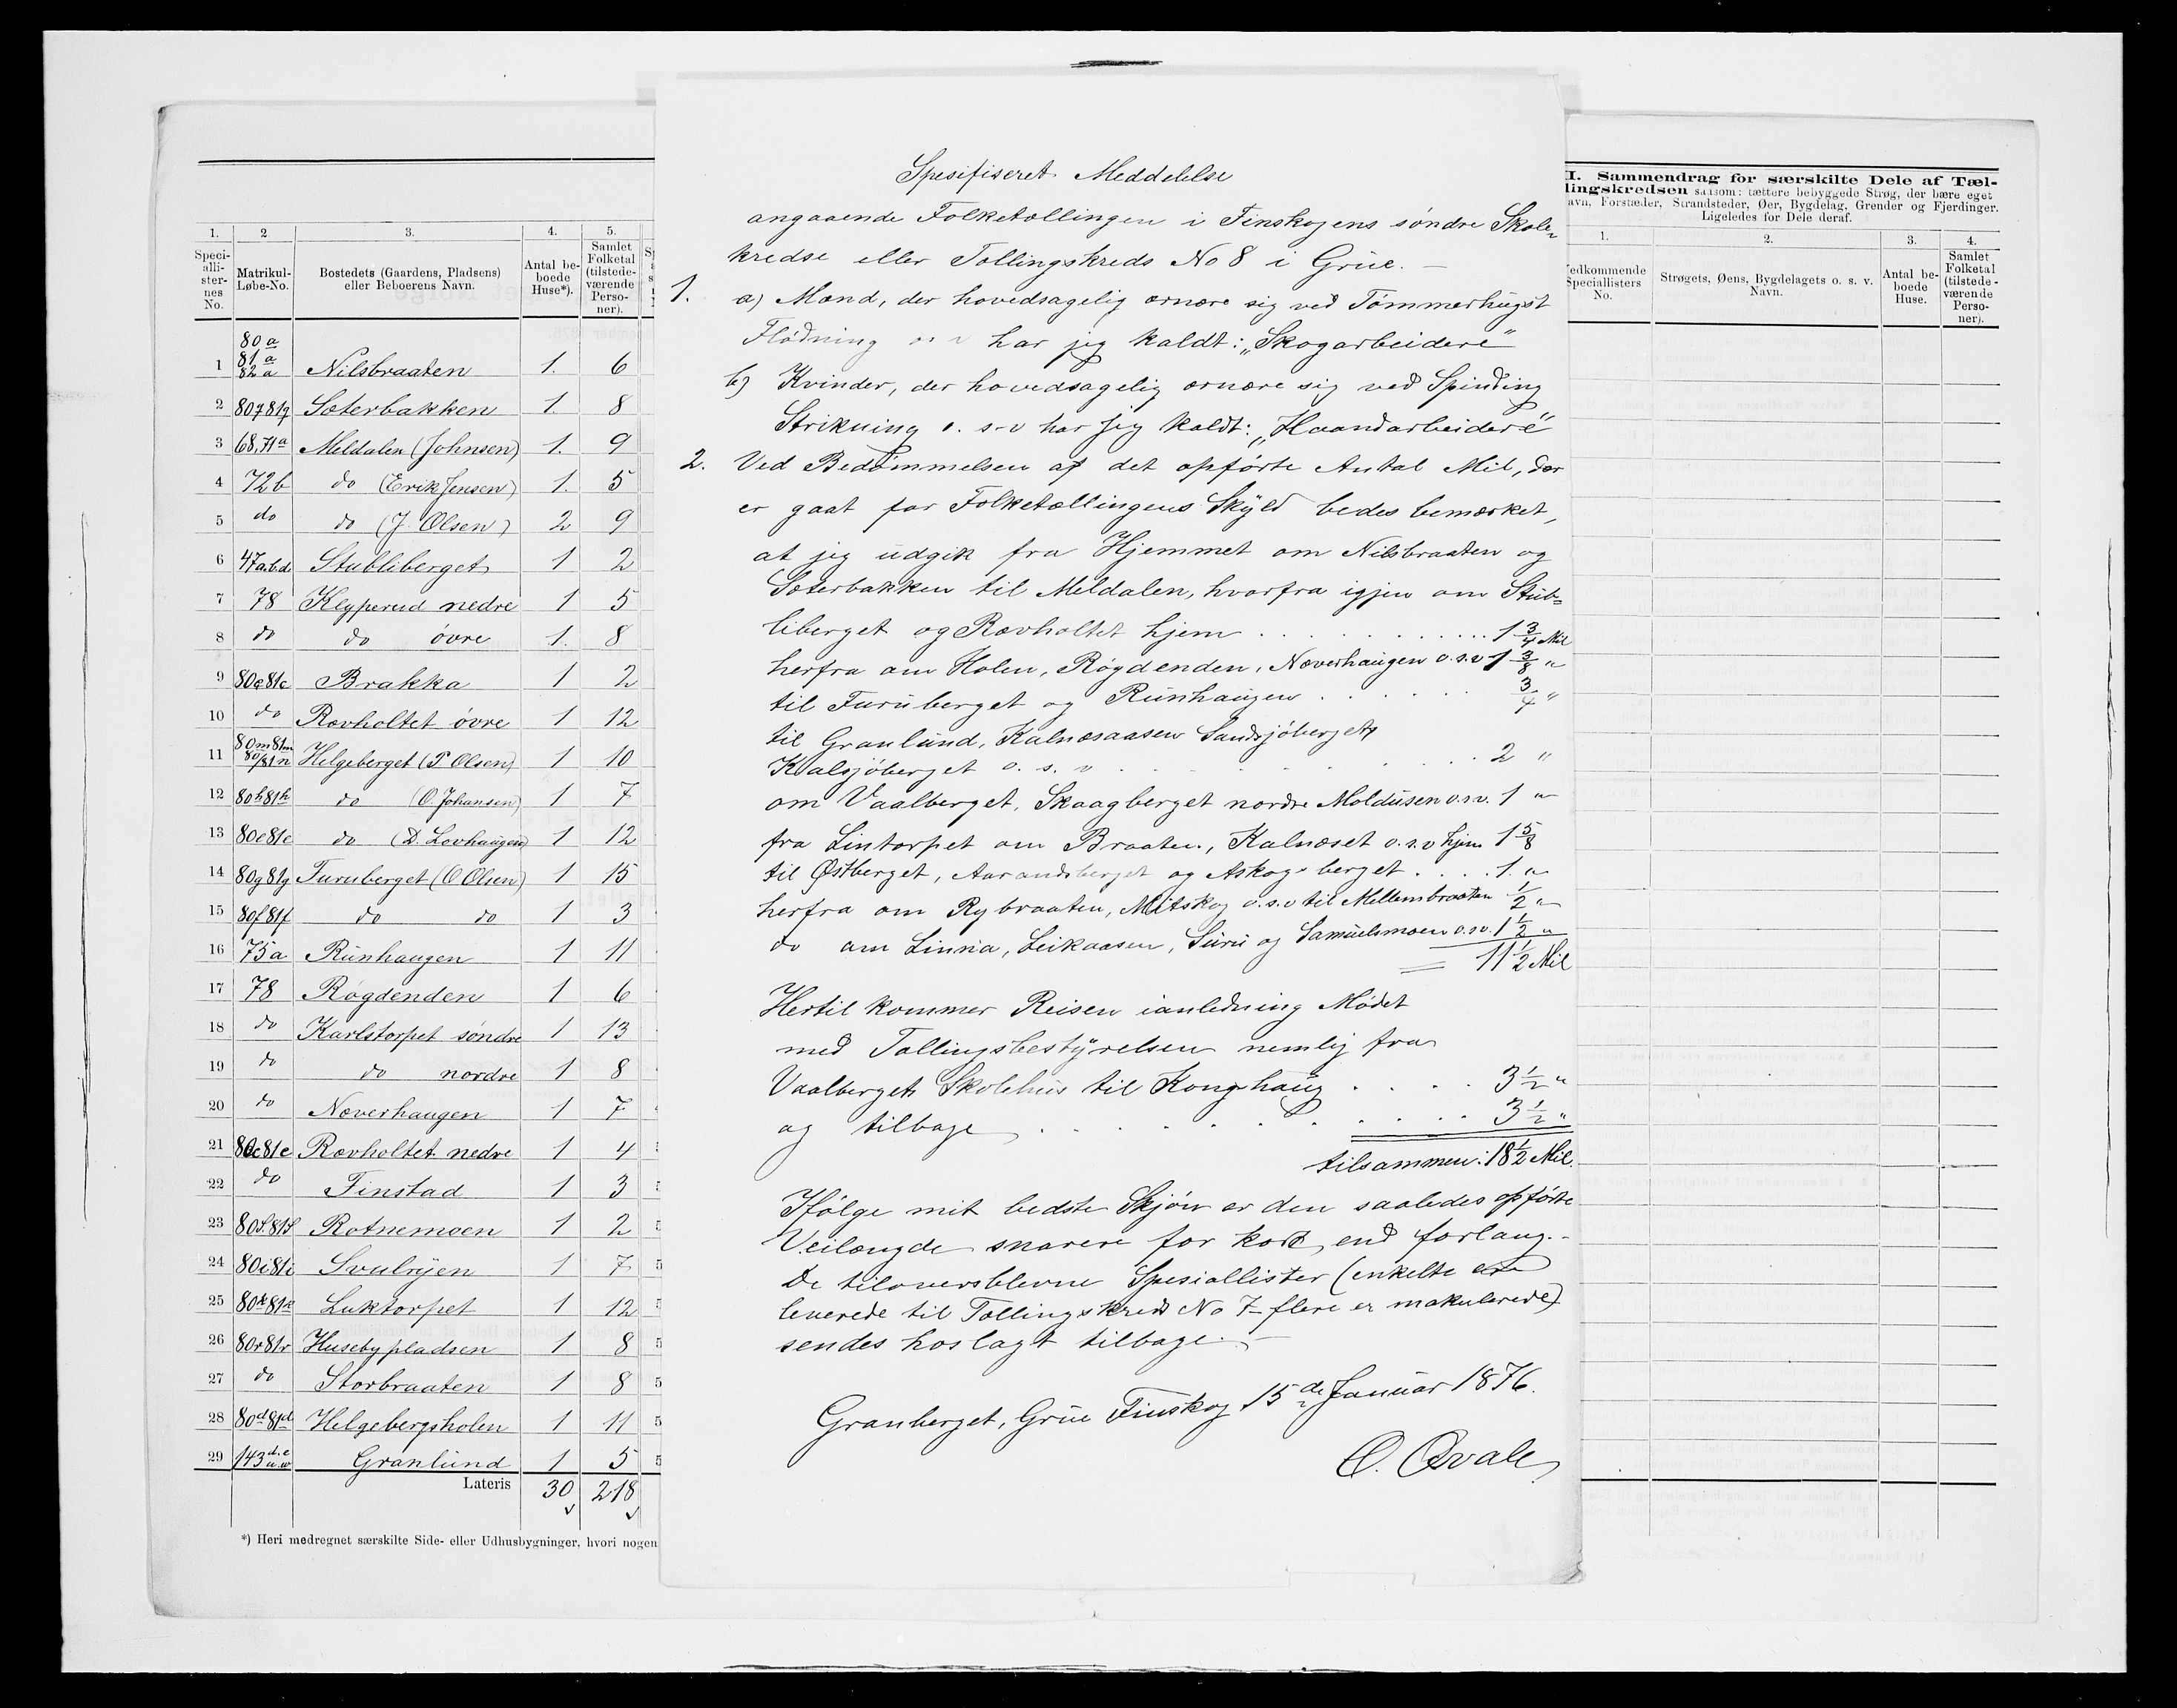 1.
2.
3.
4.
5.
Speci-
alli-
ster-
nes
No.
Matrikul-
Løbe-No.
Bostedets (Gaardens, Pladsens)
eller Beboerens Navn.
Antal be-
boede
Huse*).
Samlet
Folketal
(tilstede-
værende
Perso-
ner).
80 a
81 a
1 82 a Nilsbraaten 1. 6
2 80q81q Sæterbakken 1. 8
3 68,71a Meldalen (Johnsen) 1. 9
4 72b do (Erik Jensen) 1. 5
5 do do (J. Olsen) 2 9
6 47a.b.d. Stubliberget 1 2
7 78 Klyperud nedre 1 5
8 do do övre 1. 8
9 80c81c Brakka 1 2
10 do Rovholtet övre 1 12
80m81m
11 80/81n Helgeberget (P Olsen) 1 10
12 80h81h do (O. Johansen) 1 7
13 80e81e do (D. Lovhaugen) 1 12
14 80g81g Furuberget (O Olsen) 1 15
15 80f81f do do 1 3
16 75a Runhaugen 1 11
17 78 Rögdenden 1 6
18 do Karlstorpet söndre 1 13
19 do do nordre 1 8
20 do Næverhaugen 1 7
21 80c81c Rævholtet nedre 1 4
22 do Finstad 1 3
23 80s.81s Rotnemoen 1 2
24 80i81i Svulryen 1 7
25 80k81k Luktorpet 1 12
26 80r81r Husebypladsen 1 8
27 do Storbraaten 1 8
28 80d81d Helgebergsholen 1 11
29 143 d.e u.w Granlund 1 5
Lateris 30 218
*) Heri medregnet særskilte Side- eller Udhusbygninger, hvori nogen
Spesifiseret Meddelelse
angaaende Folketællingen i Finskogens söndre Skole-
kredse eller Tællingskreds No 8 i Grue. —
1. a) Mænd, der hovedsagelig ernære sig ved Tömmerhugst
Flödning o. s. v har jeg kaldt: „Skogarbeidere"
b) Kvinder, der hovedsagelig ernære sig ved Spinding
Strikning o. s. v har jeg kaldt: „Haandarbeidere"
2. Ved Bedömmelsen af det opförte Antal Mil, der
er gaat for Folketællingens Skyld bedes bemærket,
at jeg udgik fra Hjemmet om Nilsbraaten og
Sæterbakken til Meldalen, hvorfra igjen om Stub-
liberget og Rævholtet hjem . . . . 1 3/4 Mil
herfra om Holen, Rögdenden, Næverhaugen o.s.v 1 3/8 "
til Furuberget og Runhaugen . . . . 3/4 "
til Granlund, Kalnæsaasen Sandsjöberget
Kalsjöberget o. s. v . . . . 2 "
om Vaalberget, Skaagberget nordre Moldusen o.s.v. 1 "
fra Lintorpet om Braaten, Kalnæset o.s.v hjem 1 5/8
til Østberget, Aarandsberget og Askogsberget . . . . 1 "
herfra om Rybraaten, Mitskog o.s.v til Mellembraaten 1/2 "
do om Linna, Leikaasen, Suru og Samuelsmoen o.s.v. 1 1/2 "
= 11 1/2 Mil
Hertil kommer Reisen ianledning Mödet
med Tællingsbestyrelsen nemlig fra
Vaalbergets Skolehus til Kongshaug . . . . 3 1/2 "
og tilbage . . . . 3 1/2 "
tilsammen: 18 1/2 Mil.
Ifölge mit bedste Skjön er den saaledes opförte
Veilængde snarere for kort end forlang. -
De tiloversblevne Spesiallister (enkelte ere
leverede til Tællingskreds No 7 - flere er makulerede)
sendes hoslagt tilbage. -
Granberget, Grue Finskog 15 de Januar 1876.
O. Qvale
II. Sammendrag for særskilte Dele af Tæl-
lingskredsen saasom: tættere bebyggede Strøg, der bære eget
avn, Forstæder, Strandsteder, Øer, Bygdelag, Grender og Fjerdinger.
Ligeledes for Dele deraf.
1.
2.
3.
4.
edkommende
Speciallisters
No.
Strøgets, Øens, Bygdelagets o. s. v.
Navn.
Antal be-
boede
Huse.
Samlet
Folketal
(tilstede-
værende
Perso-
ner).